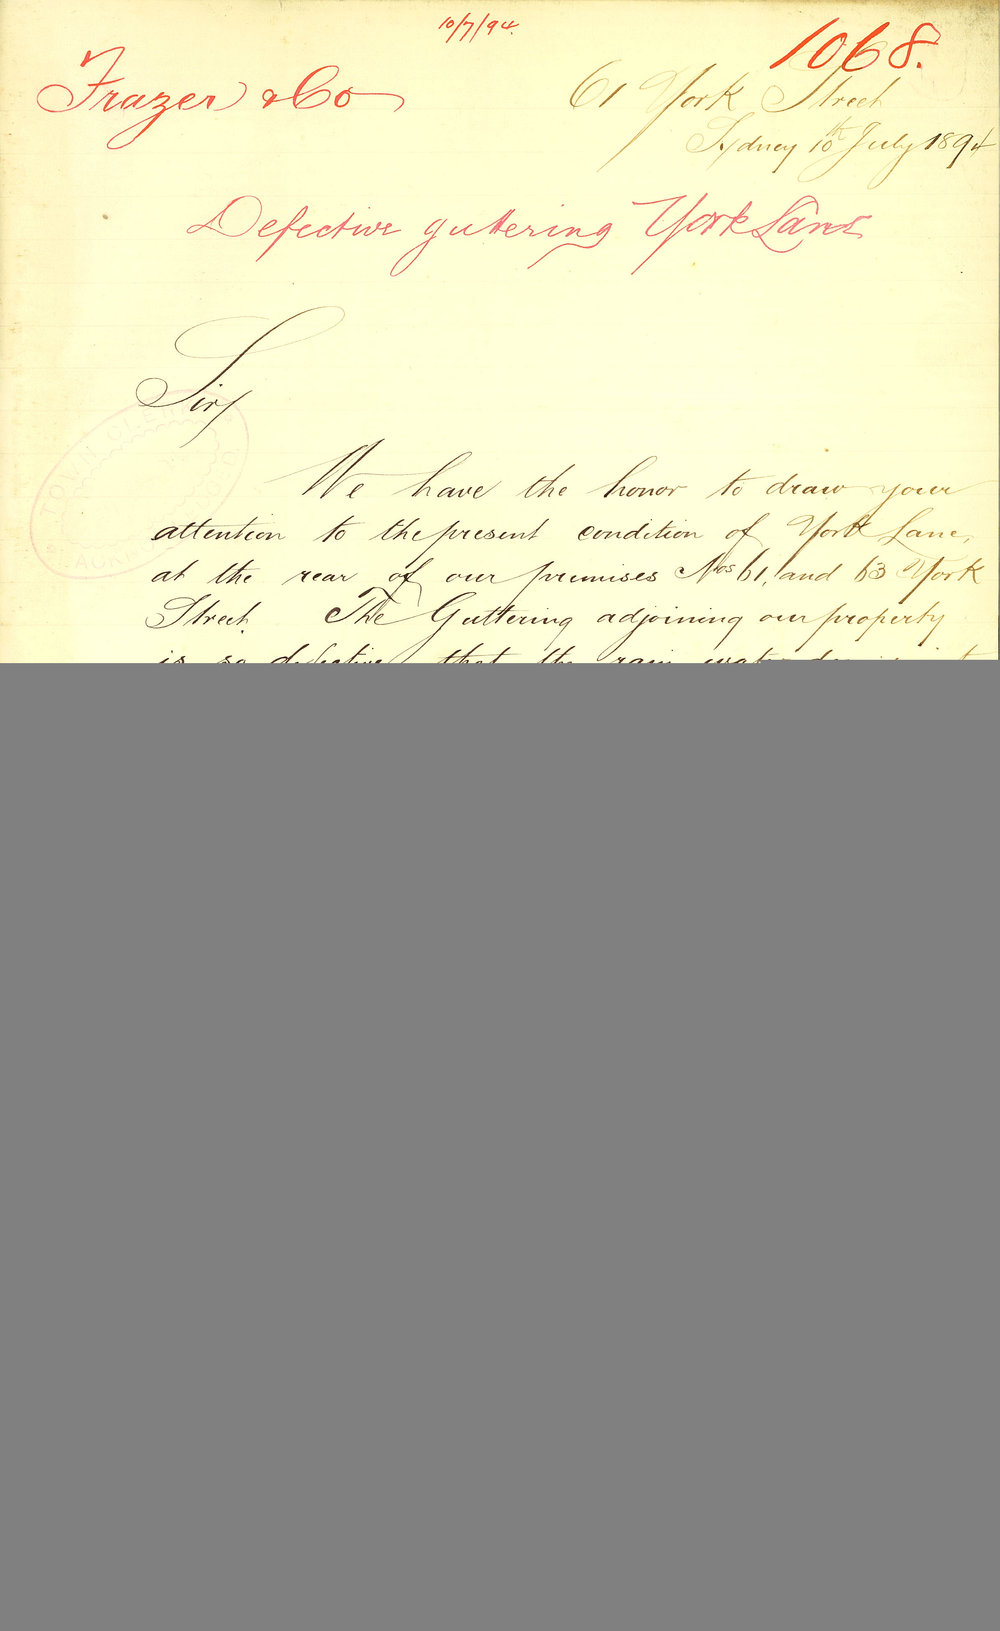 10/7/94.
1068.
Frazer & Co
61 York Street
Sydney 10th July 1894
Defective guttering York Lane
Sir/
TOWN CLERK
We have the honor to draw your
attention to the present condition of York Lane,
at the rear of our premises Nos 61, and 63 York
Street. The Guttering adjoining our property
is so defective that the rain water